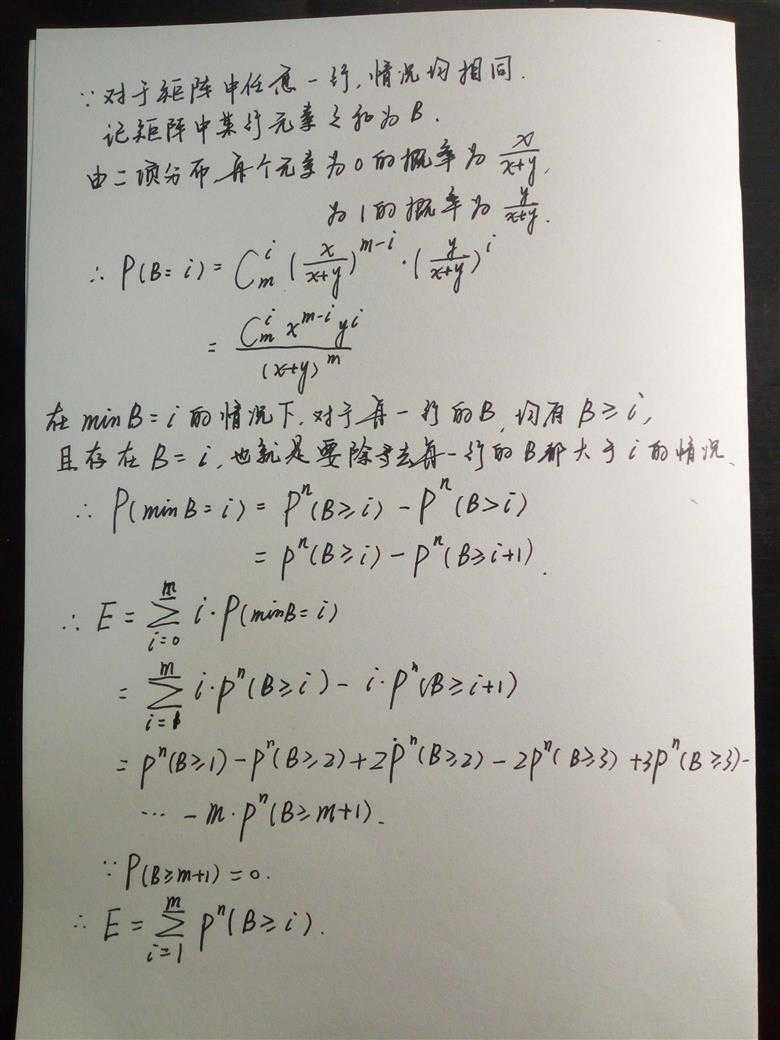 ∵对于矩阵中任意一行,情况均相同.
记矩阵中某行元素之和为B.
由二项分布,每个元素为0的概率为 x/(x+y),
为1的概率为 y/(x+y).
∴ P(B=i) = C_m^i (x/(x+y))^{m-i} · (y/(x+y))^i
= C_m^i x^{m-i} y^i / (x+y)^m
在 minB=i 的情况下,对于每一行的B,均有 B≥i,
且存在B=i,也就是要除去每一行的B都大于i的情况、
∴ P(minB=i) = P^n(B≥i) - P^n(B>i)
= P^n(B≥i) - P^n(B≥i+1).
∴ E = ∑_{i=0}^{m} i·P(minB=i)
= ∑_{i=1}^{m} i·P^n(B≥i) - i·P^n(B≥i+1)
= P^n(B≥1) - P^n(B≥2) + 2P^n(B≥2) - 2P^n(B≥3) + 3P^n(B≥3) -
··· - m·P^n(B≥m+1).
∵ P(B≥m+1) = 0.
∴ E = ∑_{i=1}^{m} P^n(B≥i).